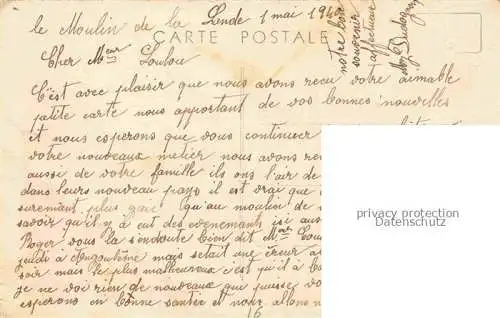 le Moulin de la Linde 1 mai 194
CARTE POSTALE
notre bon souvenir affectueux
Cher Mr Loulou
C'est avec plaisir que nous avons recu votre aimable
petite carte nous apportant de vos bonnes nouvelles
et nous esperons que vous continuer
votre nouveaux metier nous avons re
aussi de votre famille ils ons l'air de
dans leurs nouveau pays il est vrai que
surement plus gaie qu'au moulin de
savoir qu'il y a eut des evenements isi au
Roger vous la sendoute bien dit Mr Lou
jeudi a Angouleme mais setait une ereur
soir mais le plus malheureux c'est qu'il a
je ne voi rien de nouveaux que puisse vo
esperons en bonne santée et nous allons
16
privacy protection
Datenschutz